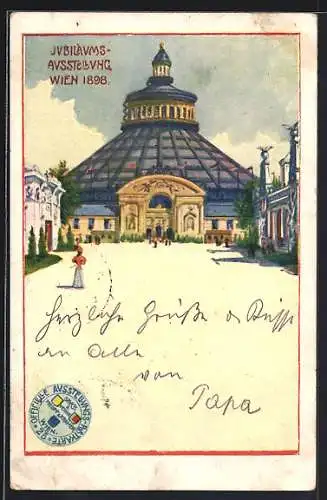 JUBILÄUMS-
AUSSTELLUNG
WIEN 1898.
Herzliche Grüße & Küsse
an Alle
von
Papa
OFFICIELLE AUSSTELLUNGS-POSTKARTE
WIEN